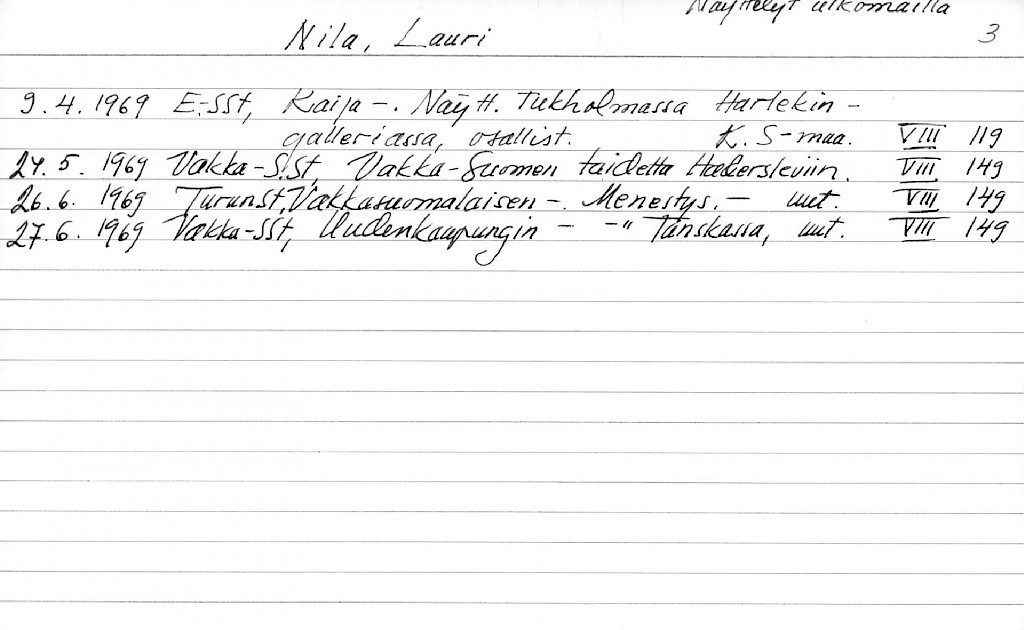 Näyttelyt ulkomailla
Nila, Lauri 3
9.4. 1969 E.-SSt, Kaija -. Näytt. Tukholmassa Harlekin-
galleriassa, osallist. K. S-maa. VIII 119
24.5. 1969 Vakka-S.St, Vakka-Suomen taidetta Habersleviin. VIII 149
26.6. 1969 Turunst, Vakkasuomalaisen -. Menestys. - uut. VIII 149
27.6. 1969 Vakka-SSt, Uudenkaupungin - -" Tanskassa, uut. VIII 149